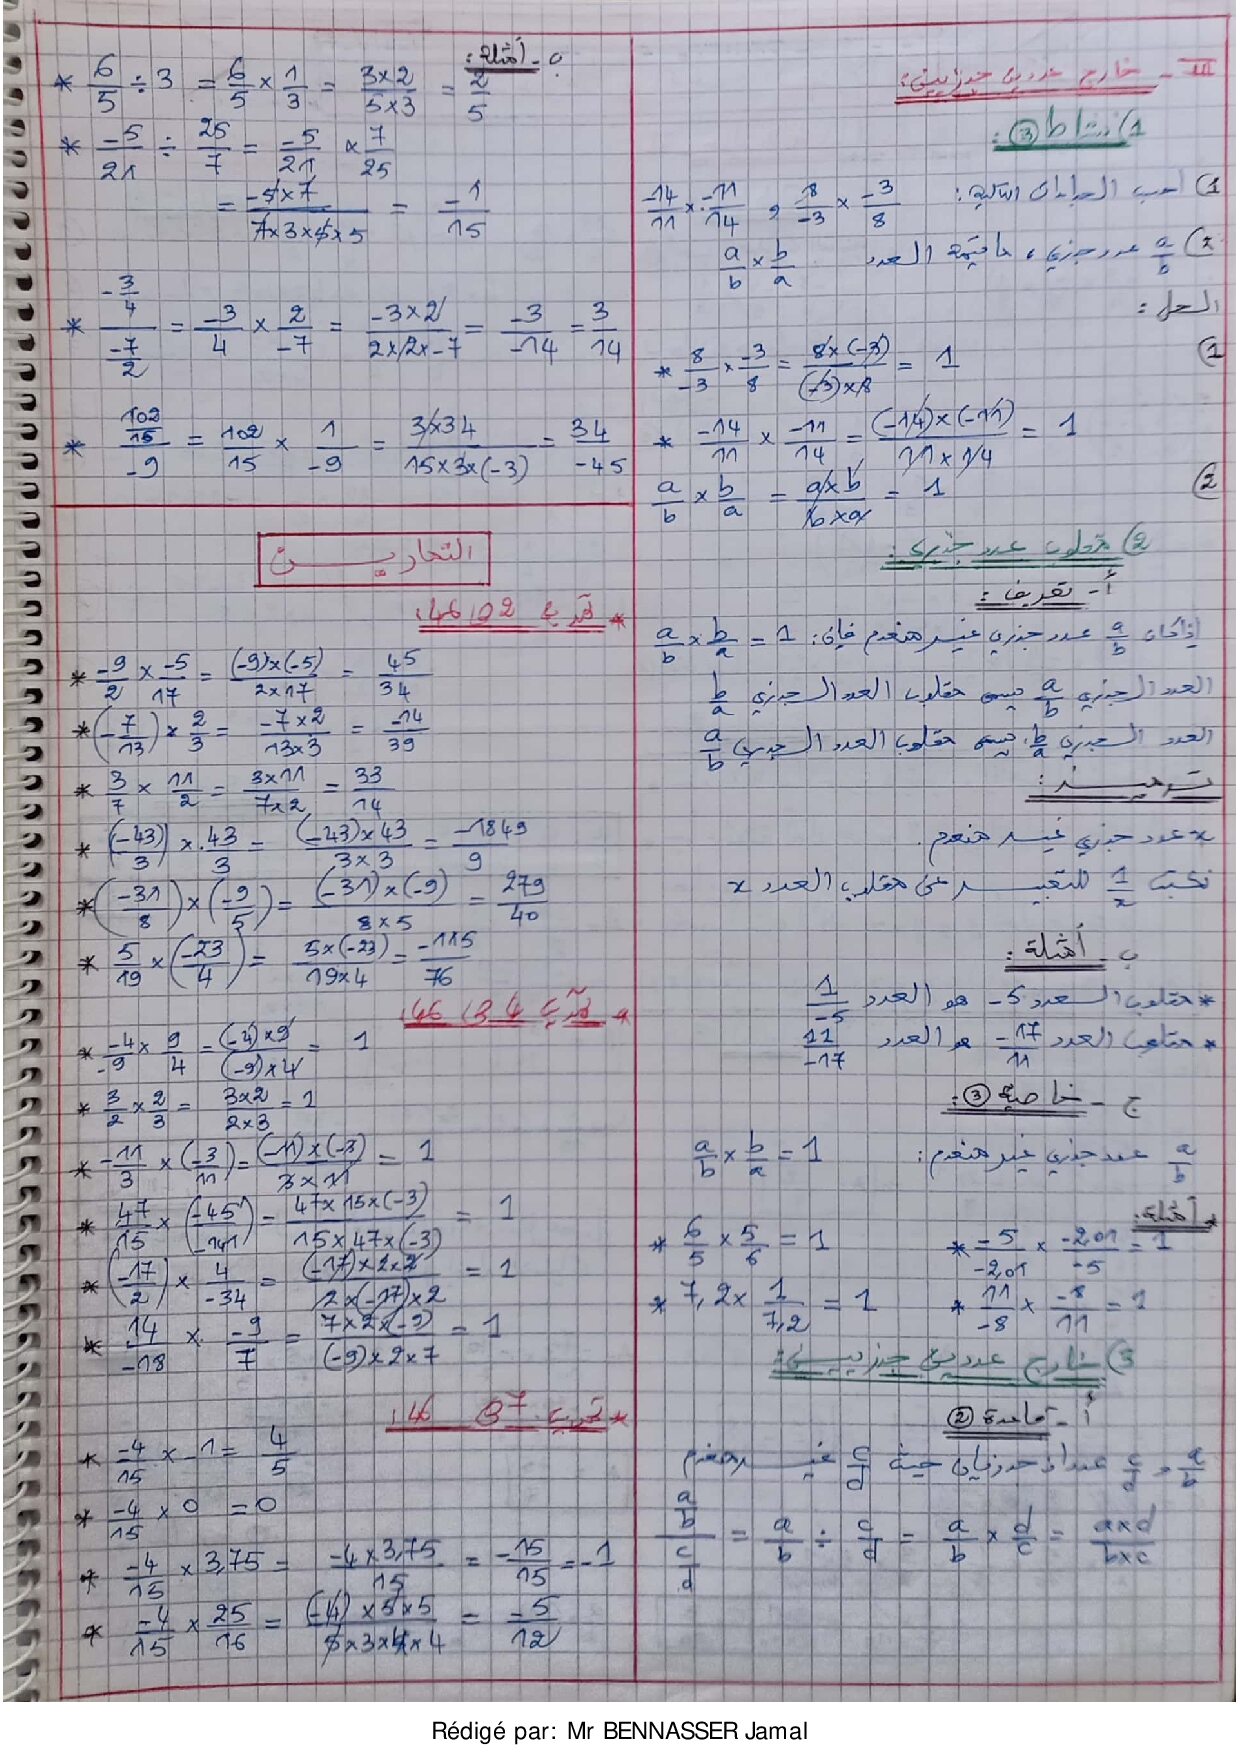 III - خارج عددين جذريين:
1) نشاط ③:
1) أحسب الجداءات التالية: 8/-3 × -3/8 , -14/11 × -11/14
2) a/b عدد جذري، ما قيمة العدد a/b × b/a
الحل:
1)
* 8/-3 × -3/8 = 8×(-3)/(-3)×8 = 1
* -14/11 × -11/14 = (-14)×(-11)/11×14 = 1
2) a/b × b/a = a×b/b×a = 1
2) مقلوب عدد جذري:
أ- تعريف:
إذا كان a/b عدد جذري غير منعدم فإن: a/b × b/a = 1
العدد الجذري a/b يسمى مقلوب العدد الجذري b/a
العدد الجذري b/a يسمى مقلوب العدد الجذري a/b
ترميز:
x عدد جذري غير منعدم.
نكتب 1/x للتعبير عن مقلوب العدد x
ب- أمثلة:
* مقلوب العدد -5 هو العدد 1/-5
* مقلوب العدد -17/11 هو العدد 11/-17
ج - خاصية ③:
a/b عدد جذري غير منعدم: a/b × b/a = 1
* أمثلة:
* 6/5 × 5/6 = 1 * -5/-2,01 × -2,01/-5 = 1
* 7,2 × 1/7,2 = 1 * 11/-8 × -8/11 = 1
3) خارج عددين جذريين:
أ - قاعدة ②
a/b و c/d عددان جذريان حيث c/d غير منعدم
(a/b)/(c/d) = a/b ÷ c/d = a/b × d/c = a×d/b×c
ب - أمثلة:
* 6/5 ÷ 3 = 6/5 × 1/3 = 3×2/5×3 = 2/5
* -5/21 ÷ 25/7 = -5/21 × 7/25
= -5×7/7×3×5×5 = -1/15
* (-3/4)/(-7/2) = -3/4 × 2/-7 = -3×2/2×2×-7 = -3/-14 = 3/14
* (102/15)/-9 = 102/15 × 1/-9 = 3×34/15×3×(-3) = 34/-45
التمارين
* -9/2 × -5/17 = (-9)×(-5)/2×17 = 45/34
* (-7/13) × 2/3 = -7×2/13×3 = -14/39
* 3/7 × 11/2 = 3×11/7×2 = 33/14
* (-43)/3 × 43/3 = (-43)×43/3×3 = -1849/9
* (-31/8) × (-9/5) = (-31)×(-9)/8×5 = 279/40
* 5/19 × (-23/4) = 5×(-23)/19×4 = -115/76
* -4/-9 × 9/4 = (-4)×9/(-9)×4 = 1
* 3/2 × 2/3 = 3×2/2×3 = 1
* -11/3 × (-3/11) = (-11)×(-3)/3×11 = 1
* 47/15 × (-45/-141) = 47×15×(-3)/15×47×(-3) = 1
* (-17/2) × 4/-34 = (-17)×2×2/2×(-17)×2 = 1
* 14/-18 × -9/7 = 7×2×(-9)/(-9)×2×7 = 1
* -4/15 × -1 = 4/5
* -4/15 × 0 = 0
* -4/15 × 3,75 = -4×3,75/15 = -15/15 = -1
* -4/15 × 25/16 = (-4)×5×5/5×3×4×4 = -5/12
Rédigé par: Mr BENNASSER Jamal